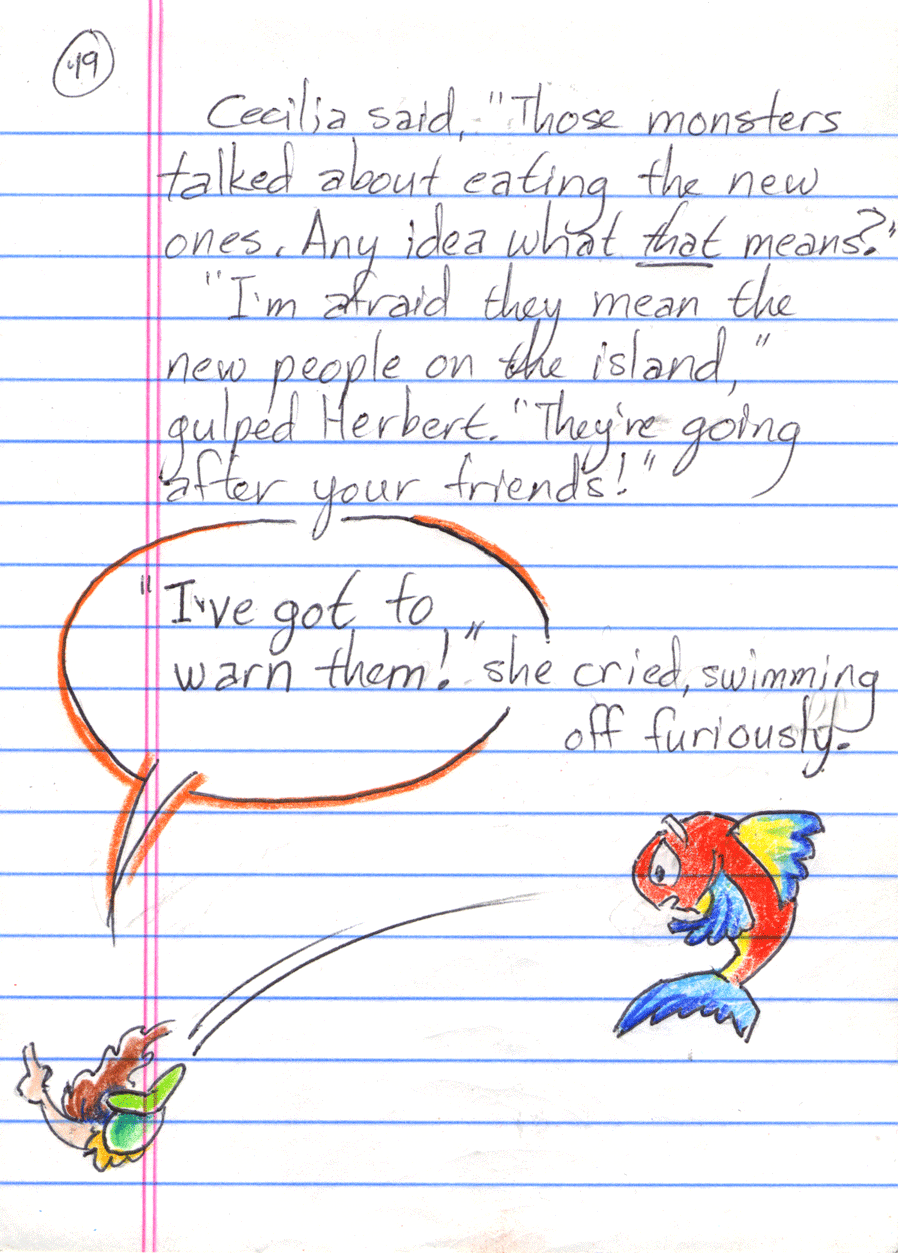 19
Cecilia said, "Those monsters
talked about eating the new
ones. Any idea what that means?"
"I'm afraid they mean the
new people on the island,"
gulped Herbert. "They're going
after your friends!"
"I've got to
warn them!" she cried, swimming
off furiously.